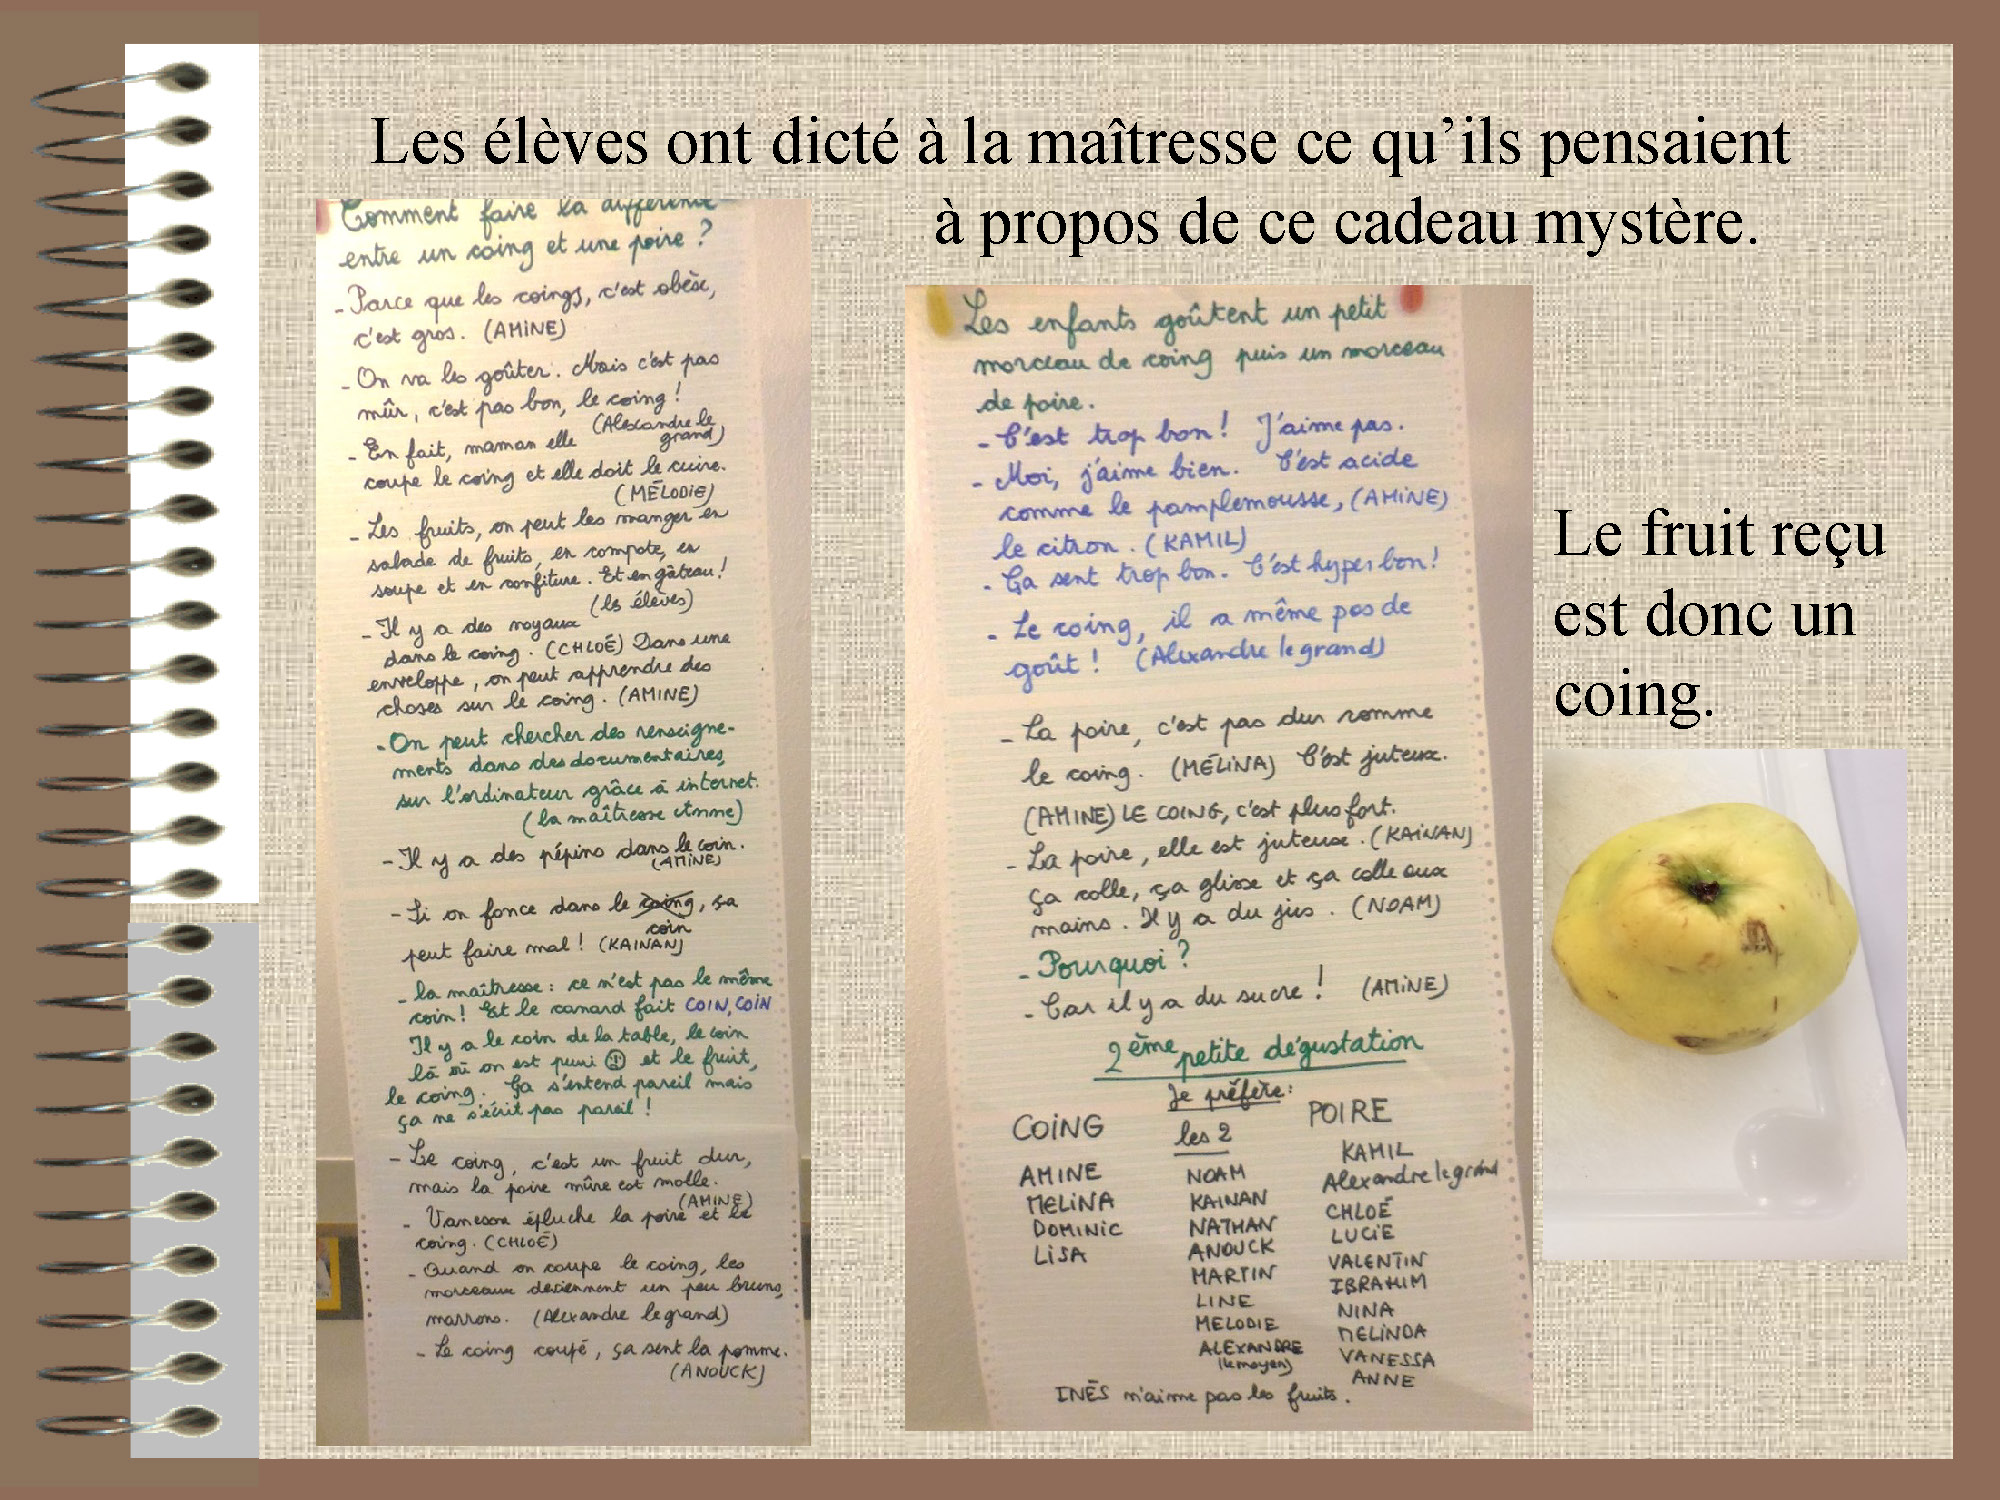 Les élèves ont dicté à la maîtresse ce qu’ils pensaient
à propos de ce cadeau mystère.
Comment faire la différence
entre un coing et une poire ?
- Parce que les coings, c'est obèse,
c'est gros. (AMINE)
- On va les goûter. Mais c'est pas
mûr, c'est pas bon, le coing !
(Alexandre le
grand)
- En fait, maman elle
coupe le coing et elle doit le cuire.
(MÉLODIE)
- Les fruits, on peut les manger en
salade de fruits, en compote, en
soupe et en confiture. Et en gâteau !
(les élèves)
- Il y a des noyaux
dans le coing. (CHLOÉ) Dans une
enveloppe, on peut apprendre des
choses sur le coing. (AMINE)
- On peut chercher des renseigne-
ments dans des documentaires,
sur l'ordinateur grâce à internet.
(la maîtresse Anne)
- Il y a des pépins dans le coin.
(AMINE)
- Si on fonce dans le coing, ça
coin
peut faire mal ! (KAINAN)
- la maîtresse : ce n'est pas le même
coin ! Et le canard fait COIN, COIN
Il y a le coin de la table, le coin
là où on est puni et le fruit,
le coing. Ça s'entend pareil mais
ça ne s'écrit pas pareil !
- Le coing, c'est un fruit dur,
mais la poire mûre est molle.
(AMINE)
- Vanessa épluche la poire et le
coing. (CHLOÉ)
- Quand on coupe le coing, les
morceaux deviennent un peu bruns,
marrons. (Alexandre le grand)
- Le coing coupé, ça sent la pomme.
(ANOUCK)
Les enfants goûtent un petit
morceau de coing puis un morceau
de poire.
- C'est trop bon ! J'aime pas.
- Moi, j'aime bien. C'est acide
comme le pamplemousse, (AMINE)
le citron. (KAMIL)
- Ça sent trop bon. C'est hyper bon !
- Le coing, il a même pas de
goût ! (Alexandre le grand)
- La poire, c'est pas dur comme
le coing. (MÉLINA) C'est juteux.
(AMINE) LE COING, c'est plus fort.
- La poire, elle est juteuse. (KAINAN)
Ça colle, ça glisse et ça colle aux
mains. Il y a du jus. (NOAM)
- Pourquoi ?
- Car il y a du sucre ! (AMINE)
2ème petite dégustation
Je préfère :
COING les 2 POIRE
AMINE NOAM KAMIL
MELINA KAINAN Alexandre le grand
DOMINIC NATHAN CHLOÉ
LISA ANOUCK LUCIE
MARTIN VALENTIN
LINE IBRAHIM
MELODIE NINA
ALEXANDRE MELINDA
(le moyen) VANESSA
ANNE
INÈS n'aime pas les fruits.
Le fruit reçu
est donc un
coing.